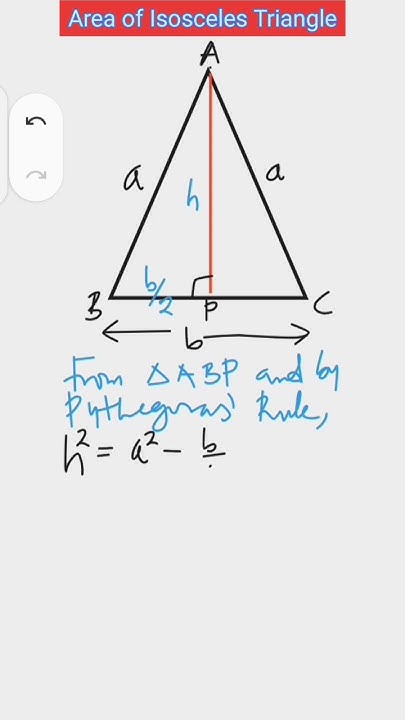 Area of Isosceles Triangle
A
a
a
h
b/2
B
P
C
b
From △ABP and by
Pythegoras' Rule,
h² = a² - b